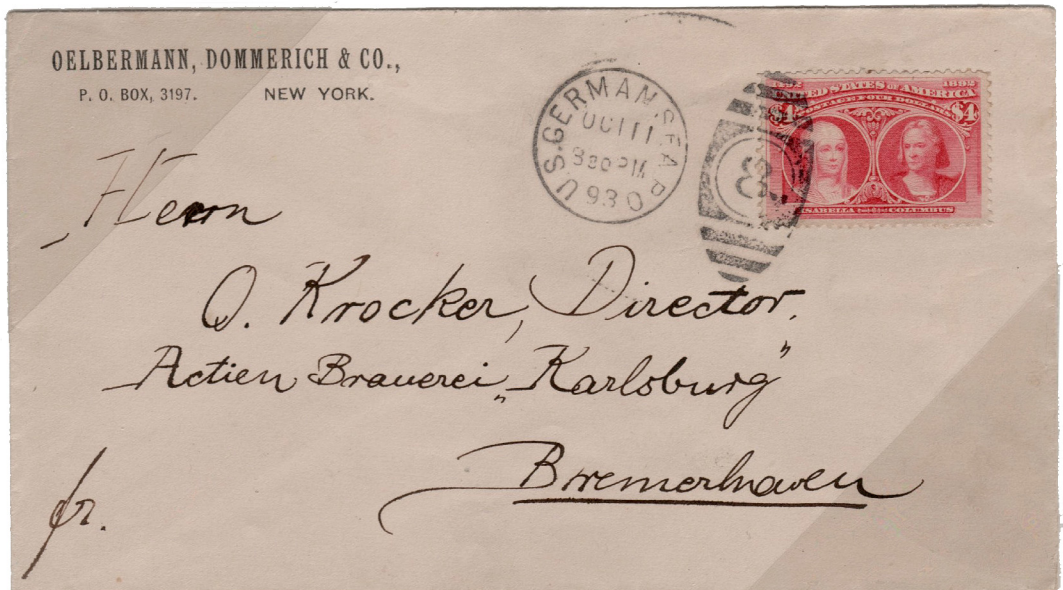 OELBERMANN, DOMMERICH & CO.,
P. O. BOX, 3197. NEW YORK.
U.S. GERMAN SEA P.O
OCT 11
3 30 PM
93
1492 1892
UNITED STATES OF AMERICA
POSTAGE FOUR DOLLARS
$4 $4
ISABELLA COLUMBUS
Herrn
O. Krocker, Director.
Actien Brauerei „Karlsburg"
Bremerhaven
fr.